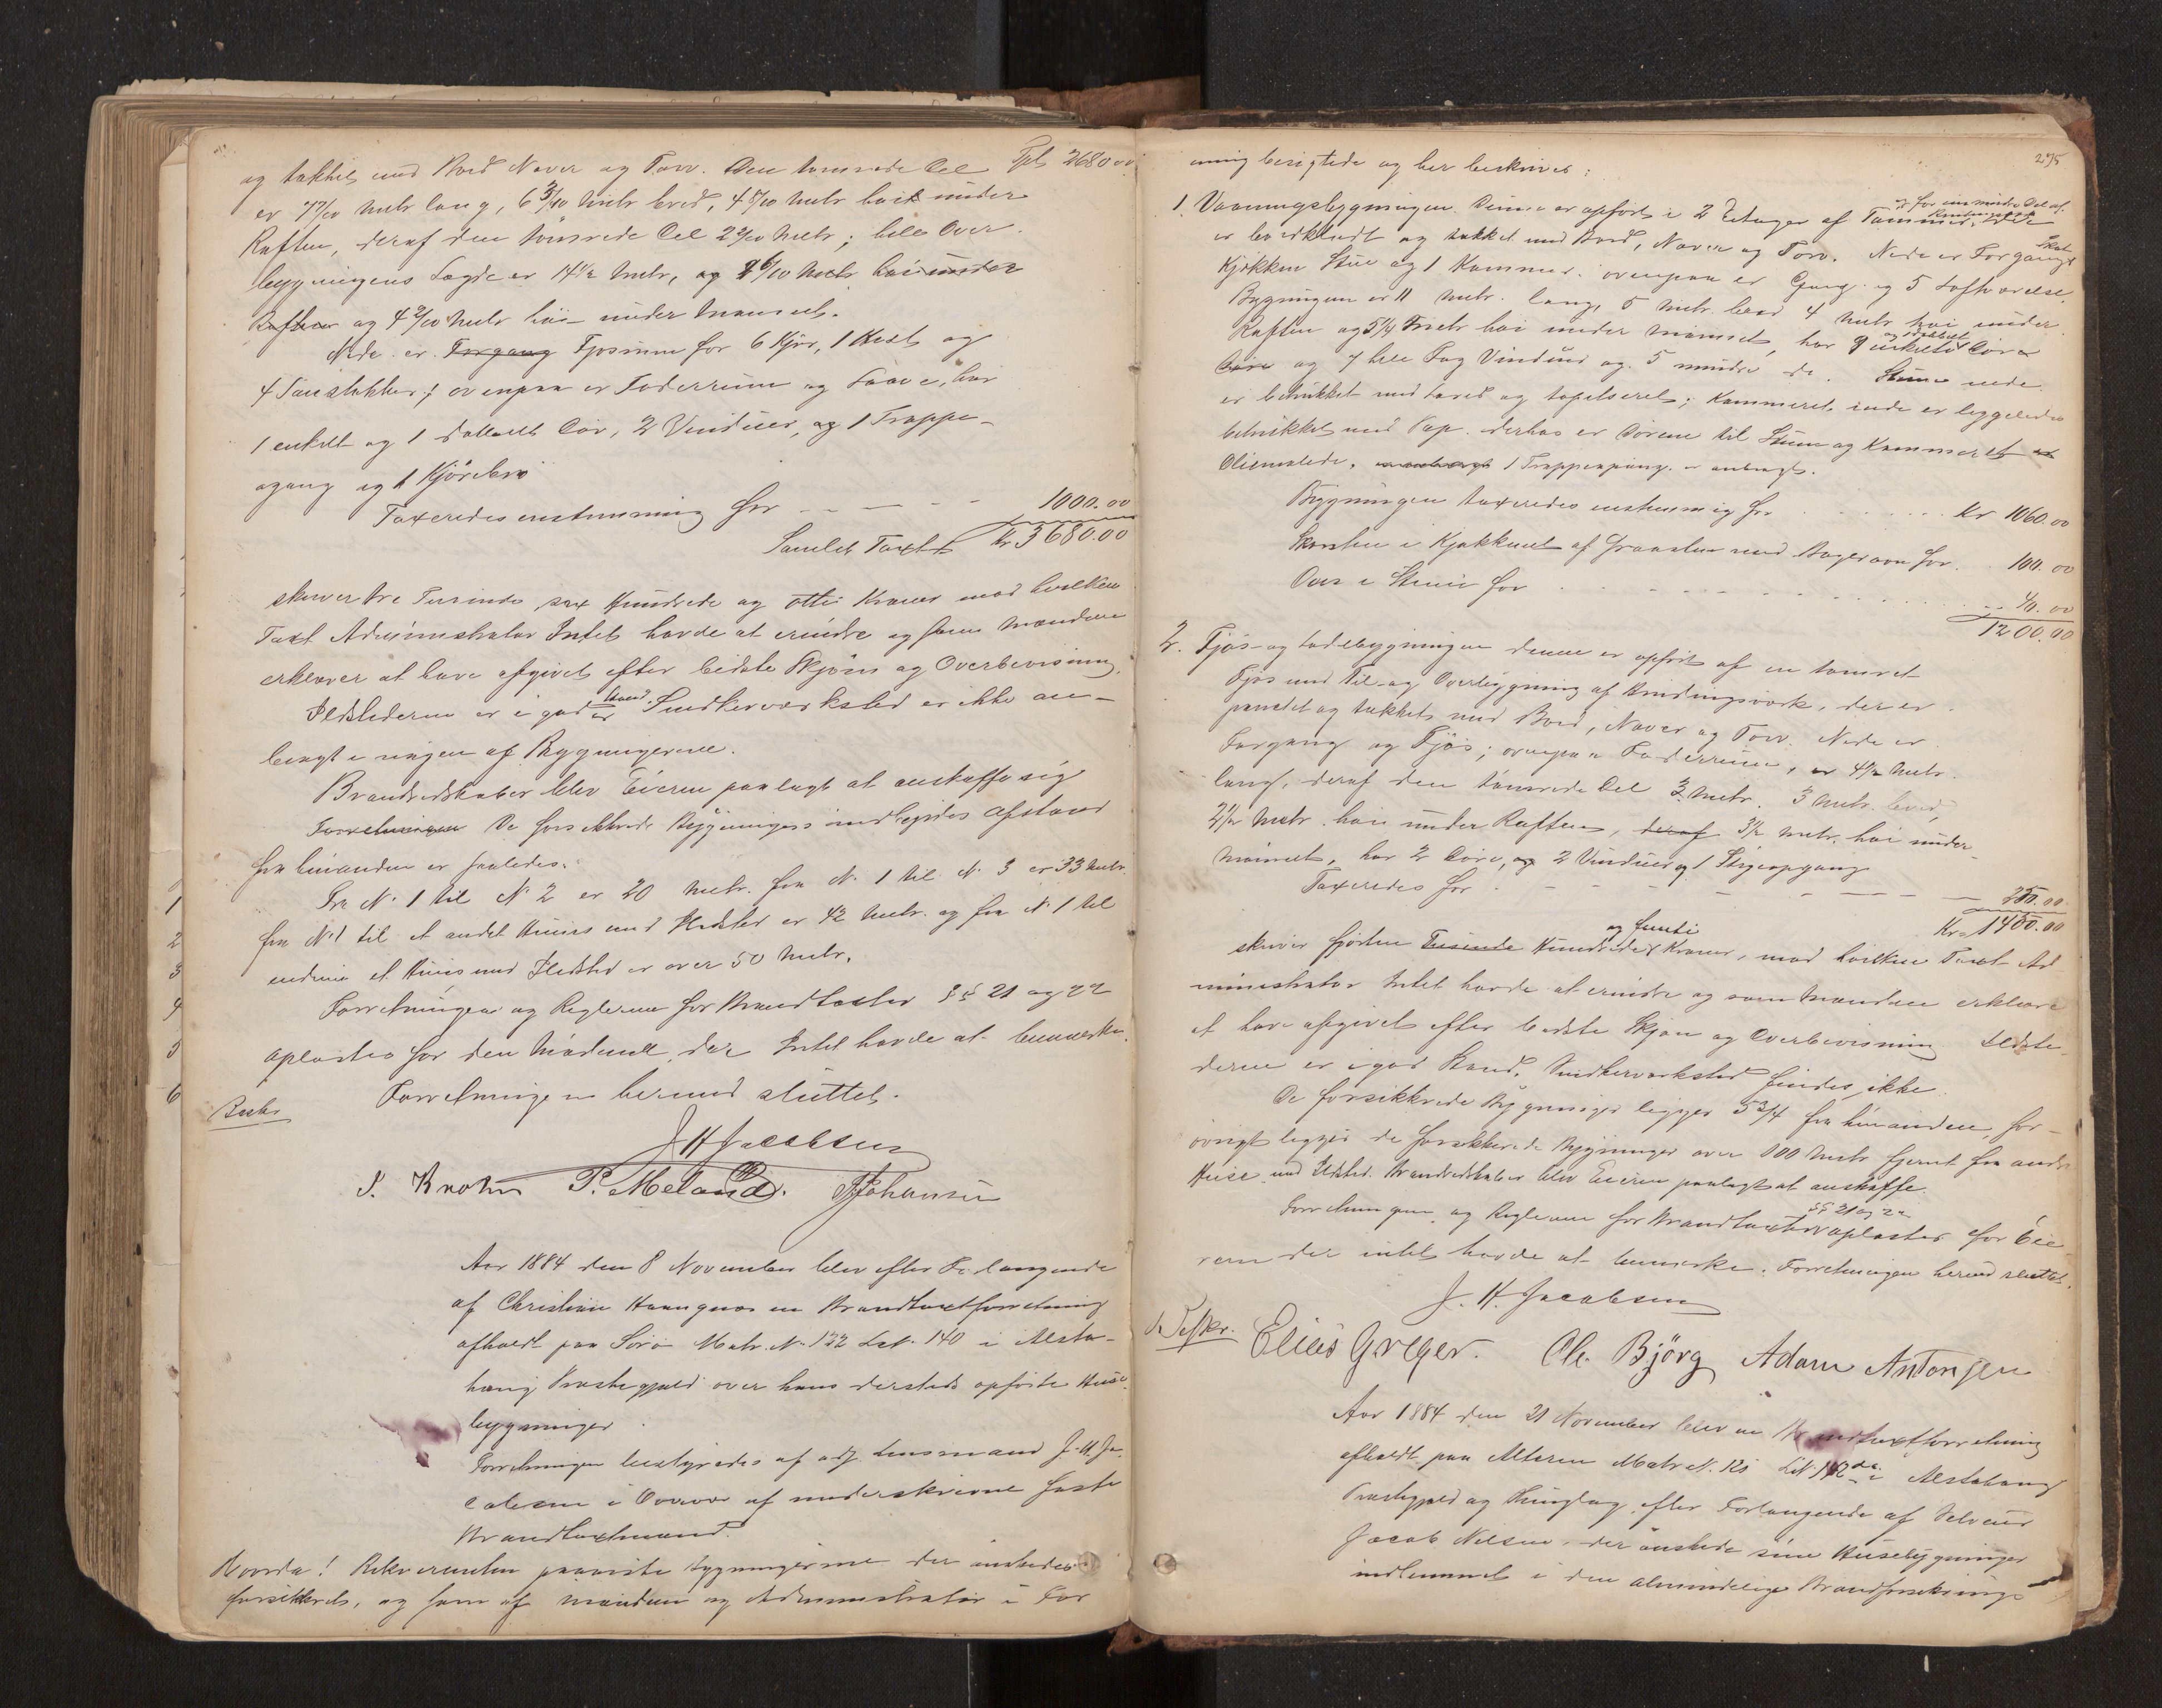 og takket med Bord Næver og Torv. Den tømrede Del Tpt 2680.00
er 7 7/10 Metr lang, 6 3/10 Metr bred, 4 5/10 Metr høi under
Raften, deraf den tømrede Del 2 9/10 Metr; hele Over-
bygningens Længde er 14 1/2 Metr, og høi under
Raften og 4 9/10 Metr høi under Mønset.
Nede er Forgang Fjøsrum for 6 Kjør, 1 Hest og
4 Faustykker; ovenpaa er Foderrum og Laave, har
1 enkelt og 1 dobbelt Dør, 2 Vinduer, og 1 Trappe-
opgang og 1 Kjørebro
Taxeredes enstemmig for 1000.00
Samlet Taxt Kr 3680.00
skriver tre Tusinde sex Hundrede og otti Kroner mod hvilken
Taxt Administrator Intet havde at erindre og som Mændene
erklærer at have afgivet efter bedste Skjøn og Overbevisning.
Ildstederne er i god Stand. Snedkerværksted er ikke an-
bragt i nogen af Bygningerne.
Brandredskaber blev Eieren paalagt at anskaffe sig
Forretningen De forsikkrede Bygningers indbyrdes Afstand
fra hinanden er saaledes.
Fra N. 1 til N 2 er 20 Metr. fra N. 1 til N. 3 er 33 Metr.
fra N. 1 til et andet Huus med Ildsted er 42 Metr. og fra N. 1 til
endnu et Huus med Ildsted er over 50 Metr.
Forretningen og Reglerne for Brandtaxter §§ 21 og 22
oplæstes for den Mødende, der Intet havde at bemærke.
Forretningen hermed sluttet.
Beskr
J H Jacobsen
P. Meland. J Johansen
Aar 1884 den 8 November blev efter Forlangende
af Christian Haugnæs en Brandtaxtforretning
afholdt paa Sørø Matr. N. 122 Løb. 140 i Alsta-
haug Præstegjæld over hans dersteds opførte Huse-
bygninger.
Forretningen bestyredes af adj. Lensmand J. H. Ja-
cobsen i Overvær af underskrevne faste
Brandtaxtmænd.
Rekvirenten paaviste Bygningerne der ønskedes
forsikkret, og som af Mændene og Administrator i For-
295
ening besigtede og her beskrives:
1. Vaaningsbygningen. Denne er opført i 2 Etager af Tømmer, og for en mindre Del af Bindingsværk der
er bordklædt og takket med Bord, Næver og Torv. Nede er Forgang
Kjøkken Stue og 1 Kammer; ovenpaa er Gang og 5 Loftværelse.
Bygningen er 11 Metr. lang, 5 Metr. bred 4 Metr høi under
Raften og 5 1/4 Metr høi under Mønset, har 9 enkelte og dobbelt Døre
Døre og 7 hele Fag Vinduer og 5 mindre do. Stuen nede
er betrukket med Lærred og tapetseret; Kammeret inde er ligeledes
betrukket med Pap. derhos er Dørene til Stuen og Kammeret
Oliemalede. 1 Trappeopgang er anbragt.
Bygningen taxeredes enstemmig for Kr 1060.00
Skorsten i Kjøkkenet af Graasten med Bagerovn for 100.00
Ovn i Stuen for 40.00
1200.00
2. Fjøs- og Ladebygningen denne er opført af en tømret
Fjøs med Til- og Overbygning af Bindingsværk, der er
panelet og takket med Bord, Næver og Torv. Nede er
Forgang og Fjøs; ovenpaa Foderrum, er 4 1/2 Metr.
lang, deraf den tømrede Del 3 Metr. 3 Metr. bred,
2 1/2 Metr. høi under Raften, deraf 3 1/2 Metr. høi under
Mønset, har 2 Døre, og 2 Vinduer og 1 Stigeopgang
Taxeredes for 250.00
Kr. 1450.00
skriver fjorten Tusinde Hundrede og femti Kroner, mod hvilken Taxt Ad-
ministrator Intet havde at erindre og som Mændene erklære
at have afgivet efter bedste Skjøn og Overbevisning Ildste-
derne er i god Stand. Snedkerværksted findes ikke.
De forsikkrede Bygninger ligger 5 3/4 fra hinanden, for-
øvrigt ligger de forsikkrede Bygninger over 100 Metr fjernt fra andre
Huse med Ildsted. Brandredskaber blev Eieren paalagt at anskaffe.
Forretningen og Reglerne for Brandtaxter §§ 21 og 22 oplæstes for Eie-
ren der intet havde at bemærke. Forretningen hermed sluttet.
J. H. Jacobsen
Elias Greger. Ole Bjørg Adam Antonsen
Aar 1884 den 21 November blev en Brandtaxtforretning
afholdt paa Alteren Matr N. 121 i Alstahaug
Præstegjæld og Thinglag, efter Forlangende af Selveier
Jacob Nilsen, der ønskede sine Husebygninger
indlemmet i den almindelige Brandforsikrings-